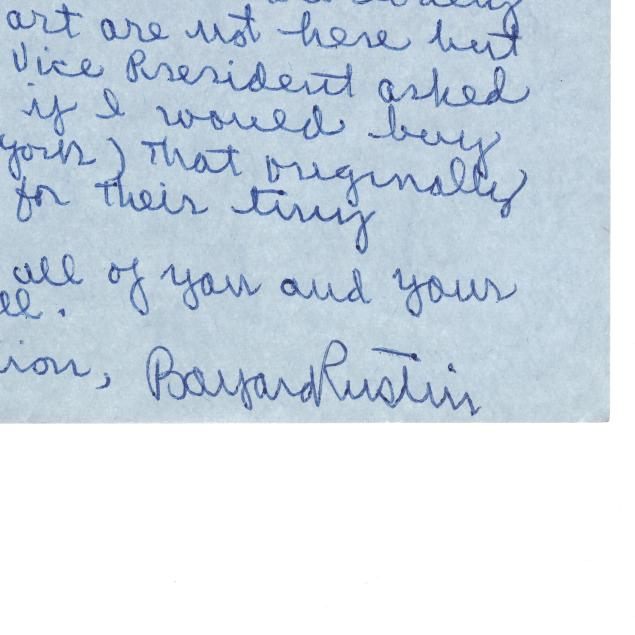 art are not here but
Vice President asked
if I would buy
York) that originally
for their tiny
all of you and your
ell.
ion, Bayard Rustin